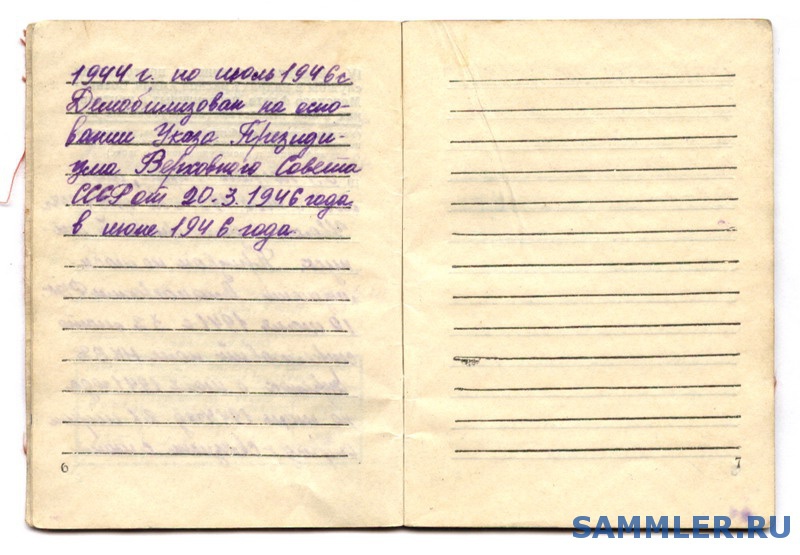 1944 г. по июль 1946 г.
Демобилизован на осно-
вании Указа Президи-
ума Верховного Совета
СССР от 20.3.1946 года
в июне 1946 года
6
7
SAMMLER.RU